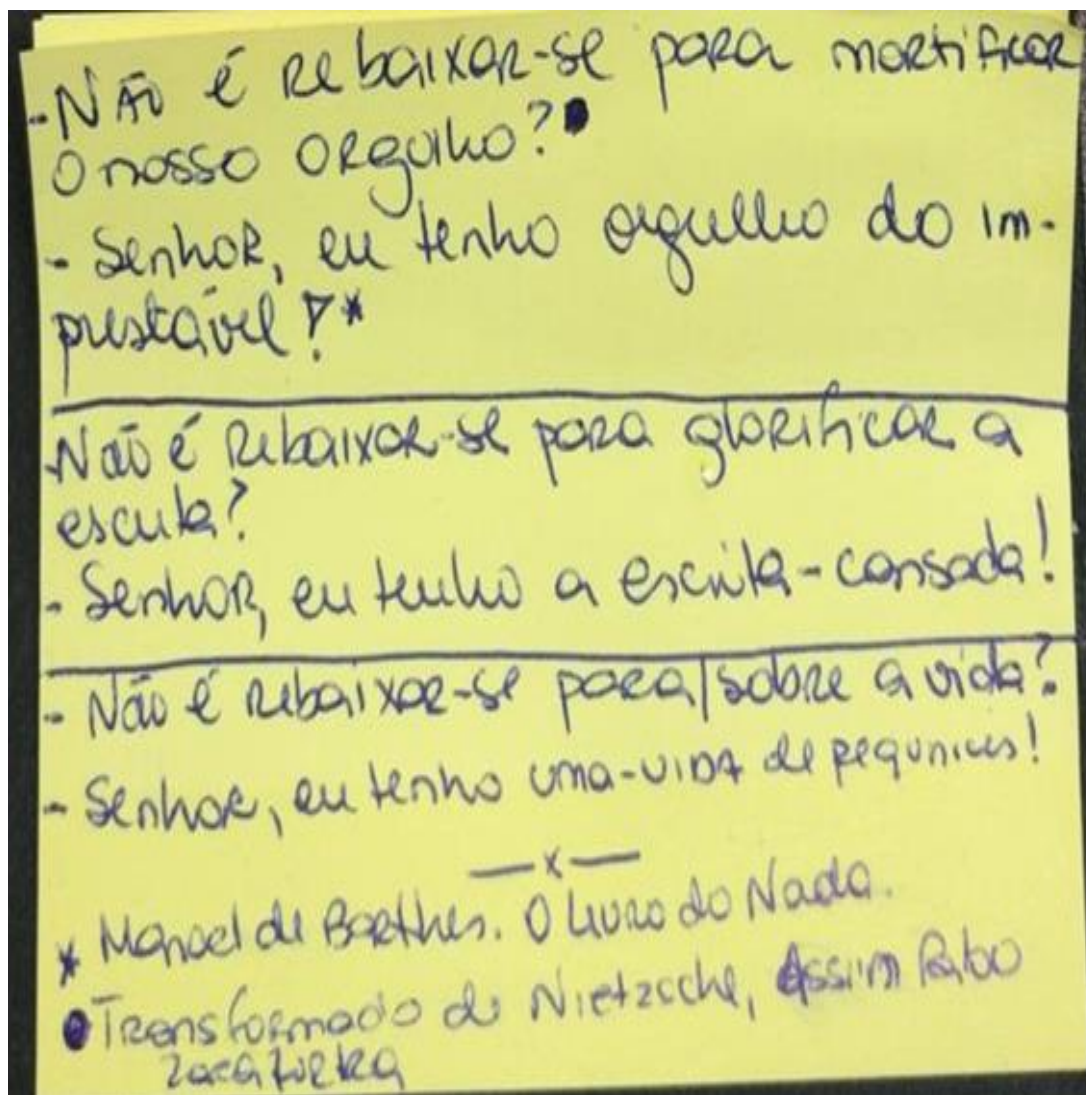 - Não é rebaixar-se para mortificar
o nosso orgulho?●
- Senhor, eu tenho orgulho do im-
prestável!*
- Não é rebaixar-se para glorificar a
escuta?
- Senhor, eu tenho a escrita-cansada!
- Não é rebaixar-se para/sobre a vida?
- Senhor, eu tenho uma-vida de pequnices!
—x—
* Manoel de Barthes. O Livro do Nada.
● Transformado de Nietzsche, Assim Falou
Zaratustra